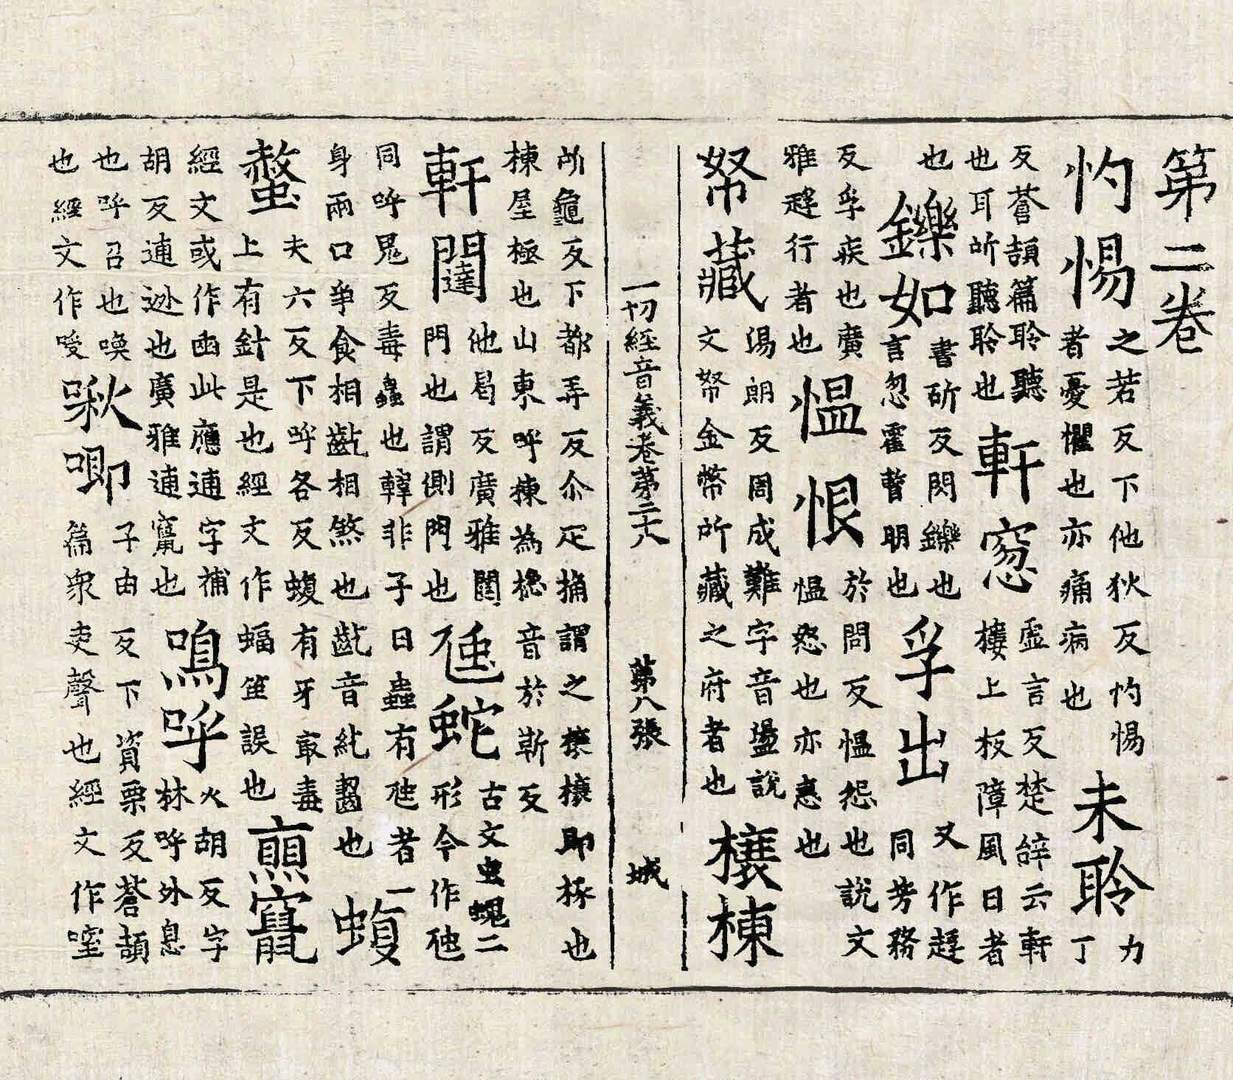 第二卷
灼惕之若反下他狄反灼惕者憂懼也亦痛病也未聆力丁
反蒼頡篇聆聽也耳所聽聆也軒窓虛言反楚辝云軒樓上板障風日者
也鑠如書斫反閃鑠也言忽霍暫明也孚出又作同芳務
反孚疾也廣雅行者也愠恨於問反愠怨也說文愠怒也亦恚也
帑藏湯朗反周成難字音盪說文帑金幣所藏之府者也榱棟
一切經音義卷第二十八 第八張 城
所龜反下都弄反尒疋桷謂之榱榱即椽也棟屋極也山東呼棟為檼音於靳反
軒闥他曷反廣雅闥門也謂側門也虺蛇古文虫二形今作虺
同呼鬼反毒蟲也韓非子曰蟲有虺者一身兩口爭食相齕相煞也齕音紇齧也蝮
螫夫六反下呼各反蝮有牙㝡毒上有針是也經文作蝠誤也竄
經文或作凾此應逋字補胡反逋迯也廣雅逋竄也嗚呼火胡反字林呼外息
也呼召也喚也經文作啾唧子由反下資栗反蒼頡篇衆吏聲也經文作